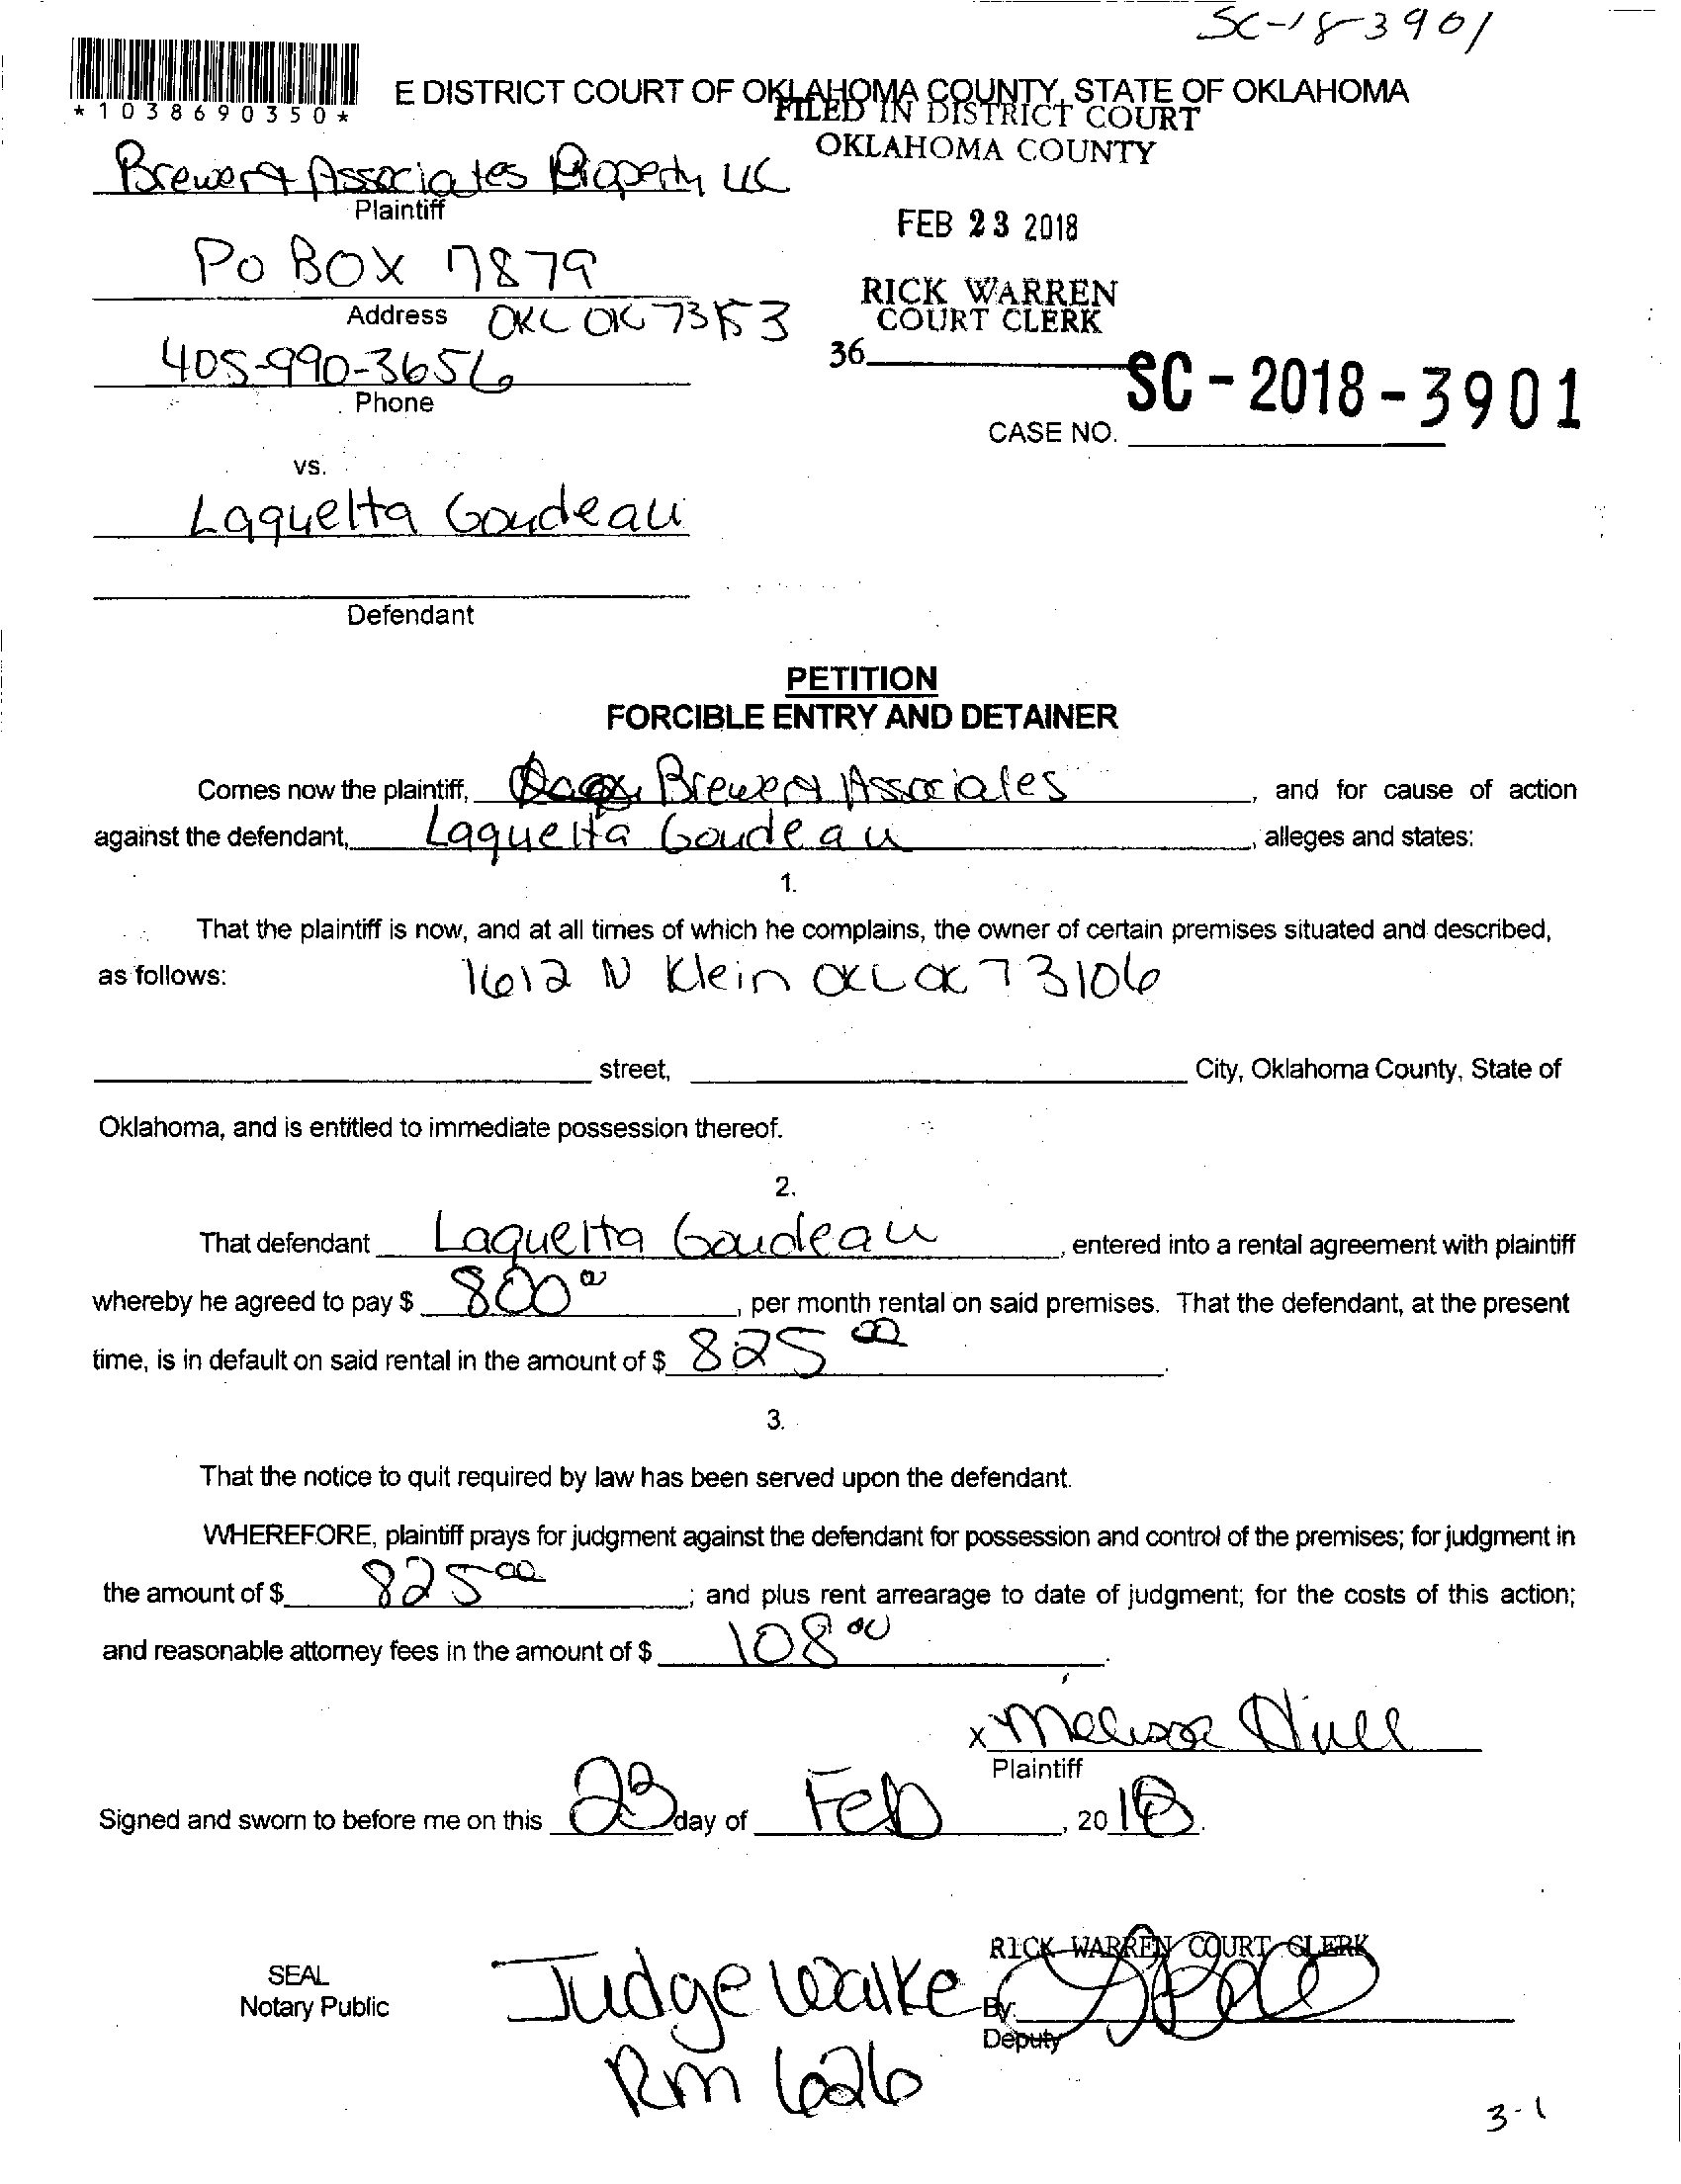 SC-18-3901
*1038690350*
E DISTRICT COURT OF OKLAHOMA COUNTY, STATE OF OKLAHOMA
FILED IN DISTRICT COURT
OKLAHOMA COUNTY
Brewer & Associates Property LLC
Plaintiff
FEB 23 2018
PO BOX 7879
RICK WARREN
COURT CLERK
Address OKC OK 73153
405-990-3656
36
Phone
SC-2018-3901
CASE NO.
vs.
Laquelta Goudeau
Defendant
PETITION
FORCIBLE ENTRY AND DETAINER
Comes now the plaintiff, Brewer & Associates, and for cause of action
against the defendant, Laquelta Goudeau, alleges and states:
1.
That the plaintiff is now, and at all times of which he complains, the owner of certain premises situated and described,
as follows: 1612 N Klein OKC OK 73106
street, City, Oklahoma County, State of
Oklahoma, and is entitled to immediate possession thereof.
2.
That defendant Laquelta Goudeau, entered into a rental agreement with plaintiff
whereby he agreed to pay $ 800 00, per month rental on said premises. That the defendant, at the present
time, is in default on said rental in the amount of $ 825 00.
3.
That the notice to quit required by law has been served upon the defendant.
WHEREFORE, plaintiff prays for judgment against the defendant for possession and control of the premises; for judgment in
the amount of $ 825 00; and plus rent arrearage to date of judgment; for the costs of this action;
and reasonable attorney fees in the amount of $ 108 00.
x Melissa Hull
Plaintiff
Signed and sworn to before me on this 23 day of Feb, 2018.
RICK WARREN COURT CLERK
SEAL
Notary Public
Judge Walke
By:
Deputy
Rm 626
3-1